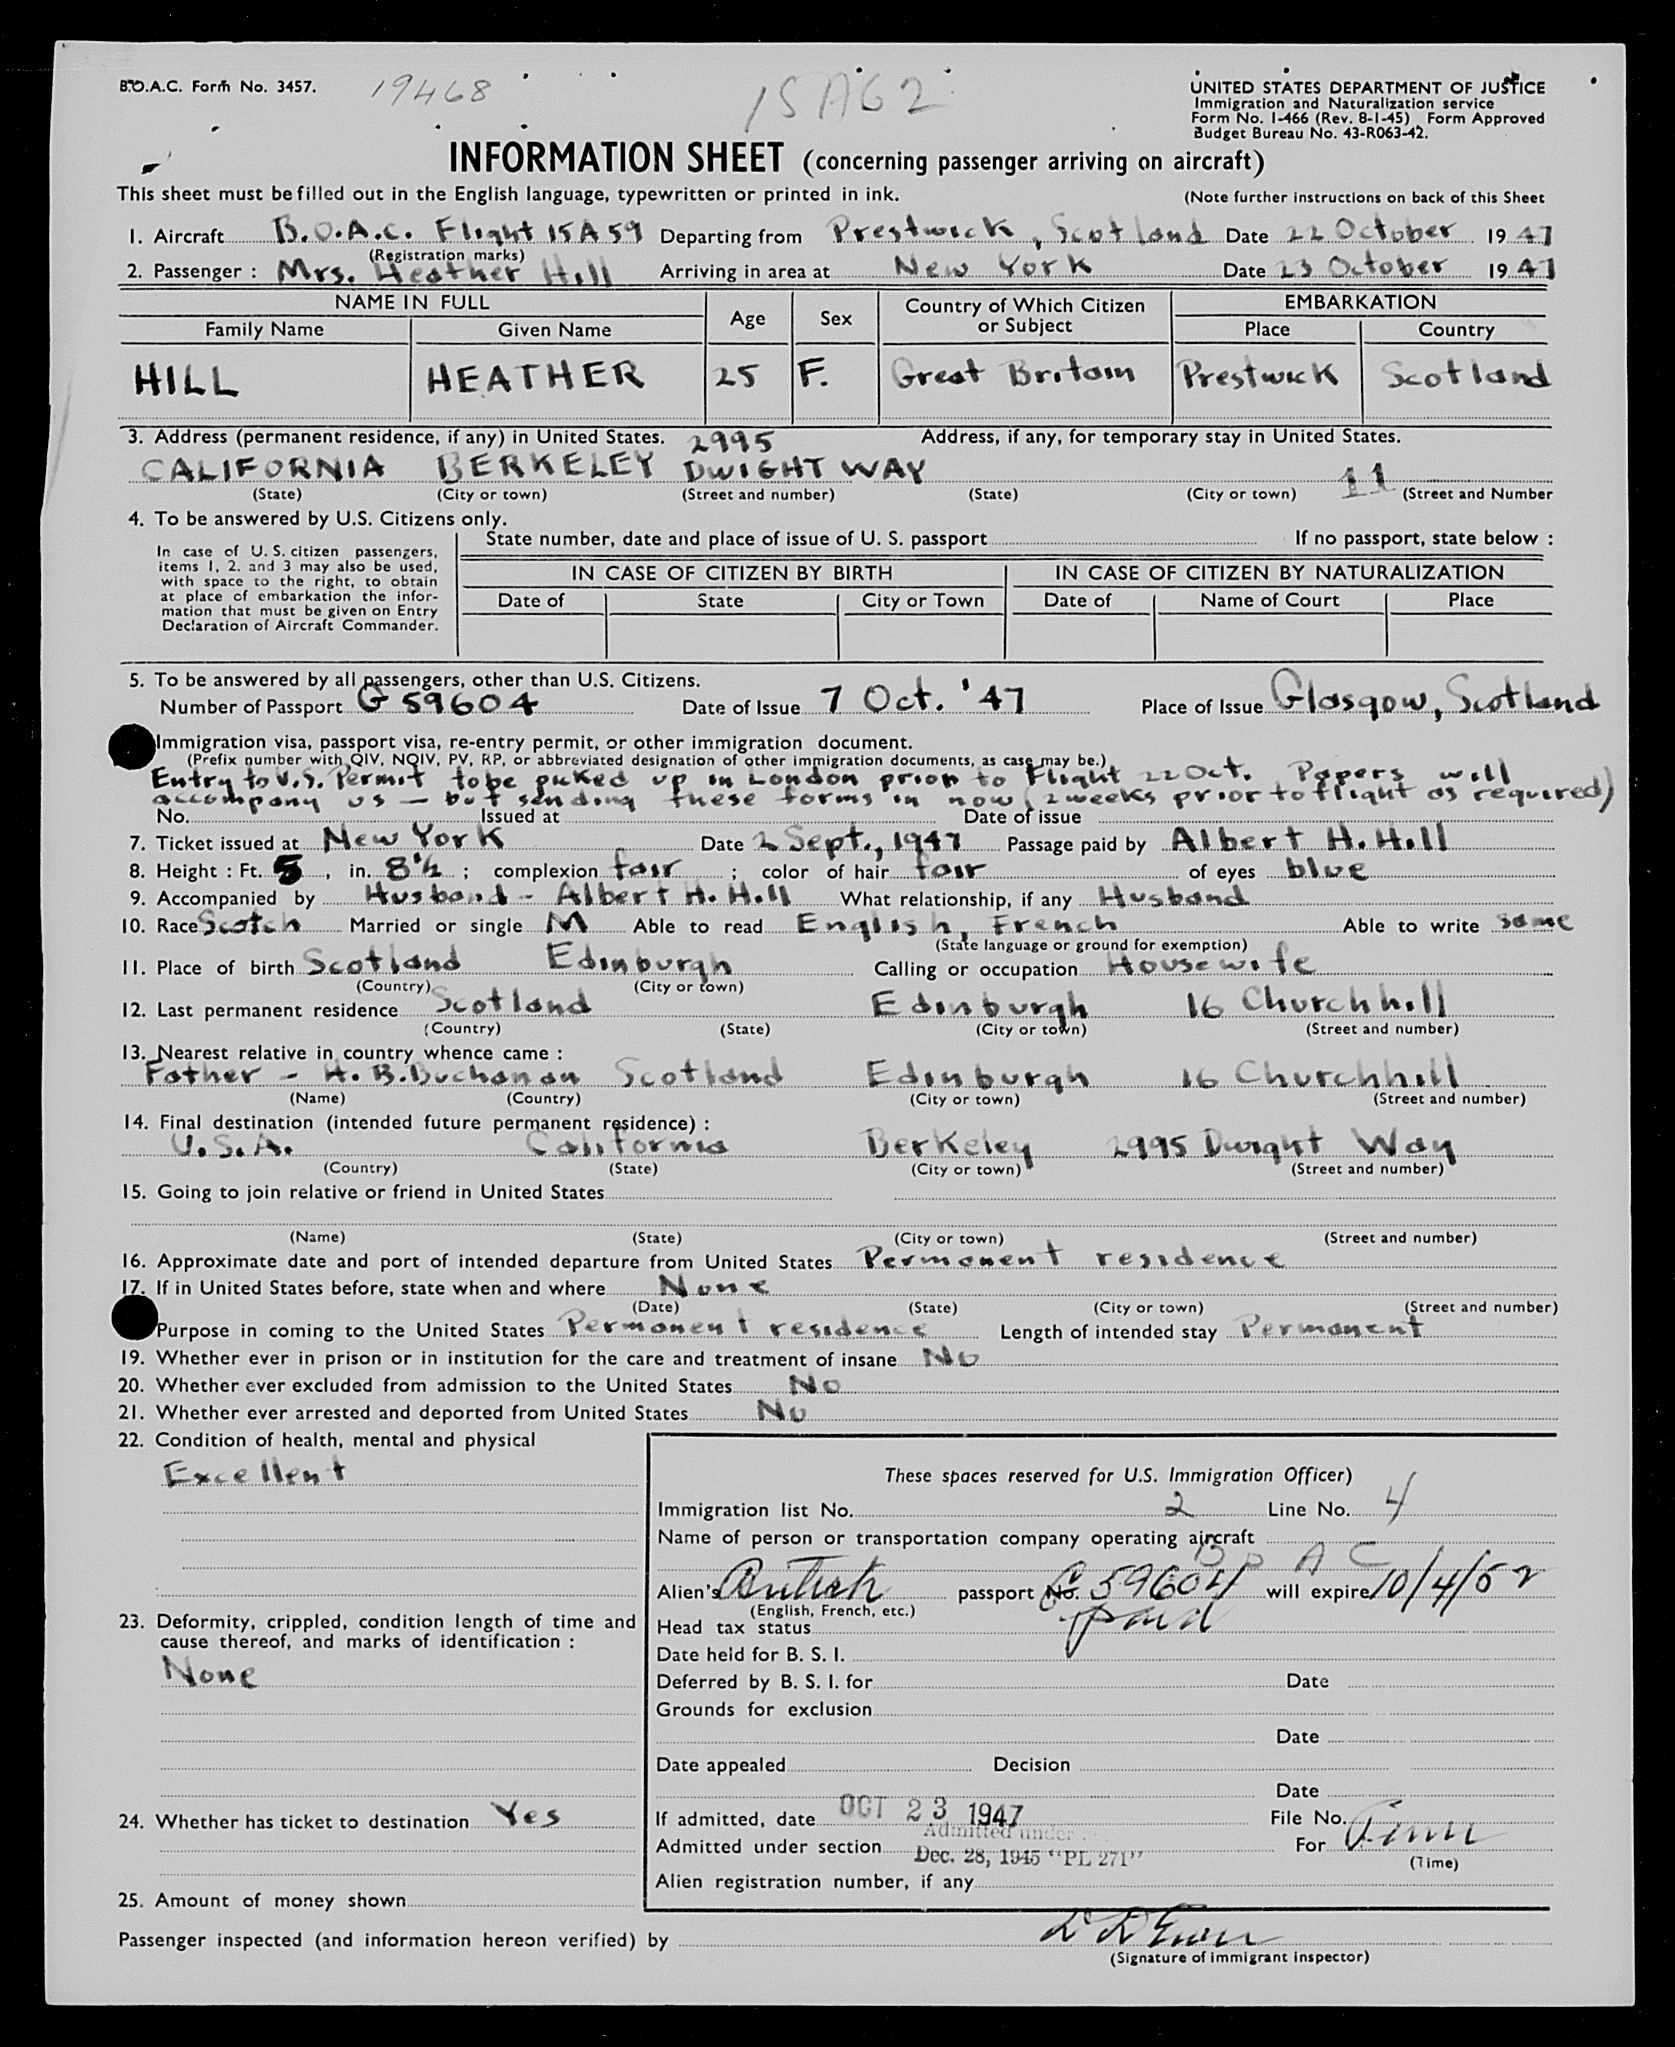 B.O.A.C. Form No. 3457. 19468 15A62
UNITED STATES DEPARTMENT OF JUSTICE
Immigration and Naturalization service
Form No. I-466 (Rev. 8-1-45) Form Approved
Budget Bureau No. 43-R063-42.
INFORMATION SHEET (concerning passenger arriving on aircraft)
This sheet must be filled out in the English language, typewritten or printed in ink. (Note further instructions on back of this Sheet
1. Aircraft B.O.A.C. Flight 15A59 Departing from Prestwick, Scotland Date 22 October 1947
(Registration marks)
2. Passenger : Mrs. Heather Hill Arriving in area at New York Date 23 October 1947
NAME IN FULL Age Sex Country of Which Citizen or Subject EMBARKATION
Family Name Given Name Place Country
HILL HEATHER 25 F. Great Britain Prestwick Scotland
3. Address (permanent residence, if any) in United States. 2995 Address, if any, for temporary stay in United States.
CALIFORNIA BERKELEY DWIGHT WAY 11
(State) (City or town) (Street and number) (State) (City or town) (Street and Number
4. To be answered by U.S. Citizens only.
State number, date and place of issue of U. S. passport If no passport, state below :
In case of U. S. citizen passengers,
items 1, 2. and 3 may also be used,
with space to the right, to obtain
at place of embarkation the infor-
mation that must be given on Entry
Declaration of Aircraft Commander.
IN CASE OF CITIZEN BY BIRTH IN CASE OF CITIZEN BY NATURALIZATION
Date of State City or Town Date of Name of Court Place
5. To be answered by all passengers, other than U.S. Citizens.
Number of Passport G 59604 Date of Issue 7 Oct. '47 Place of Issue Glasgow, Scotland
Immigration visa, passport visa, re-entry permit, or other immigration document.
(Prefix number with QIV, NQIV, PV, RP, or abbreviated designation of other immigration documents, as case may be.)
Entry to U.S. Permit to be picked up in London prior to Flight 22 Oct. Papers will
accompany us — but sending these forms in now (2 weeks prior to flight as required)
No. Issued at Date of issue
7. Ticket issued at New York Date 2 Sept., 1947 Passage paid by Albert H. Hill
8. Height : Ft. 5, in. 8½ ; complexion fair ; color of hair fair of eyes blue
9. Accompanied by Husband - Albert H. Hill What relationship, if any Husband
10. Race Scotch Married or single M Able to read English, French Able to write same
(State language or ground for exemption)
11. Place of birth Scotland Edinburgh Calling or occupation Housewife
(Country) (City or town)
12. Last permanent residence Scotland Edinburgh 16 Churchhill
(Country) (State) (City or town) (Street and number)
13. Nearest relative in country whence came :
Father - H. B. Buchanan Scotland Edinburgh 16 Churchhill
(Name) (Country) (City or town) (Street and number)
14. Final destination (intended future permanent residence) :
U.S.A. California Berkeley 2995 Dwight Way
(Country) (State) (City or town) (Street and number)
15. Going to join relative or friend in United States
(Name) (State) (City or town) (Street and number)
16. Approximate date and port of intended departure from United States Permanent residence
17. If in United States before, state when and where None
(Date) (State) (City or town) (Street and number)
Purpose in coming to the United States Permanent residence Length of intended stay Permanent
19. Whether ever in prison or in institution for the care and treatment of insane No
20. Whether ever excluded from admission to the United States No
21. Whether ever arrested and deported from United States No
22. Condition of health, mental and physical
Excellent
23. Deformity, crippled, condition length of time and
cause thereof, and marks of identification :
None
24. Whether has ticket to destination Yes
25. Amount of money shown
These spaces reserved for U.S. Immigration Officer)
Immigration list No. 2 Line No. 4
Name of person or transportation company operating aircraft
B O A C
Alien's British passport No. G 59604 will expire 10/4/52
(English, French, etc.)
Head tax status paid
Date held for B. S. I.
Deferred by B. S. I. for Date
Grounds for exclusion
Date
Date appealed Decision
Date
If admitted, date OCT 23 1947 File No.
Admitted under
Admitted under section Dec. 28, 1945 "PL 271" For
(Time)
Alien registration number, if any
Passenger inspected (and information hereon verified) by
(Signature of immigrant inspector)